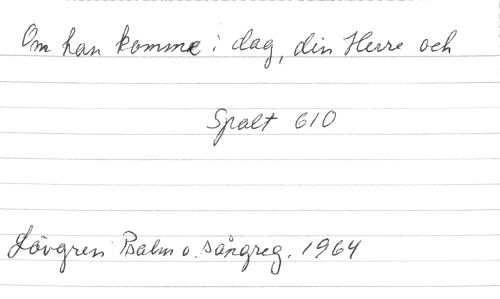 Om han komme i dag, din Herre och
Spalt 610
Lövgren Psalm o. sångreg. 1964